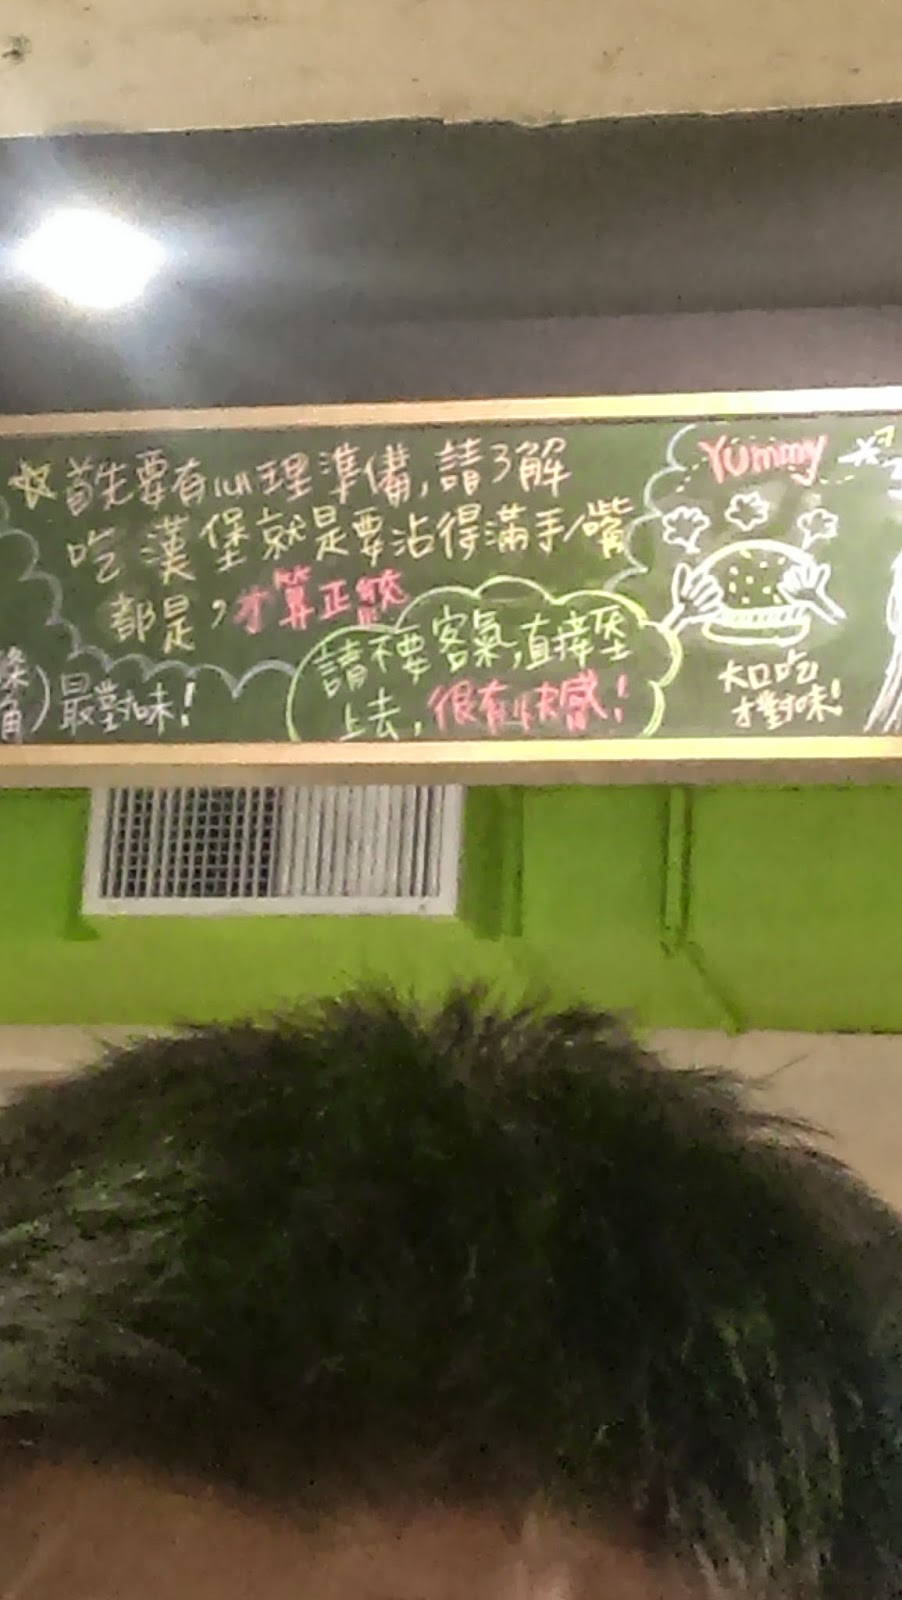 首先要有心理準備,請了解
吃漢堡就是要沾得滿手/嘴
都是,才算正統
角)最對味!
請不要客氣,直接压
上去,很有快感!
Yummy
大口吃
才對味!